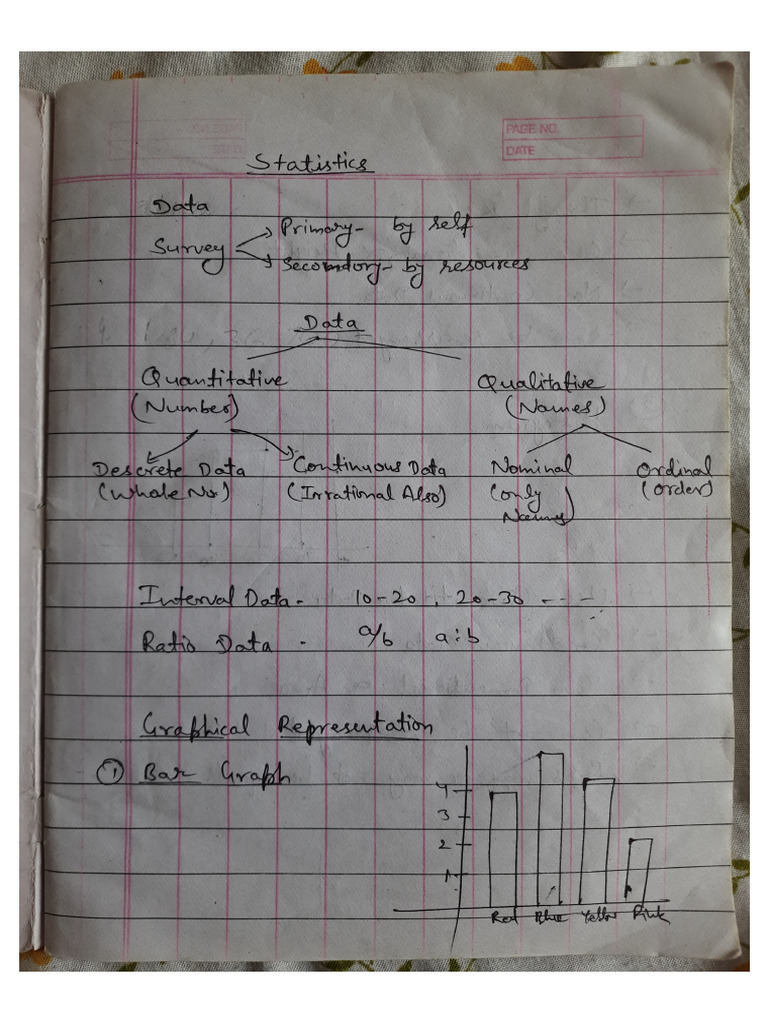 PAGE NO.
DATE
Statistics
Data
Survey
Primary - by self
Secondory - by resources
Data
Quantitative
(Number)
Qualitative
(Names)
Descrete Data
(Whole No.)
Continuous Data
(Irrational Also)
Nominal
(only
Names)
Ordinal
(order)
Interval Data - 10-20, 20-30 ----
Ratio Data - a/b a:b
Graphical Representation
① Bar Graph
4
3
2
1
Red Blue Yellow Pink